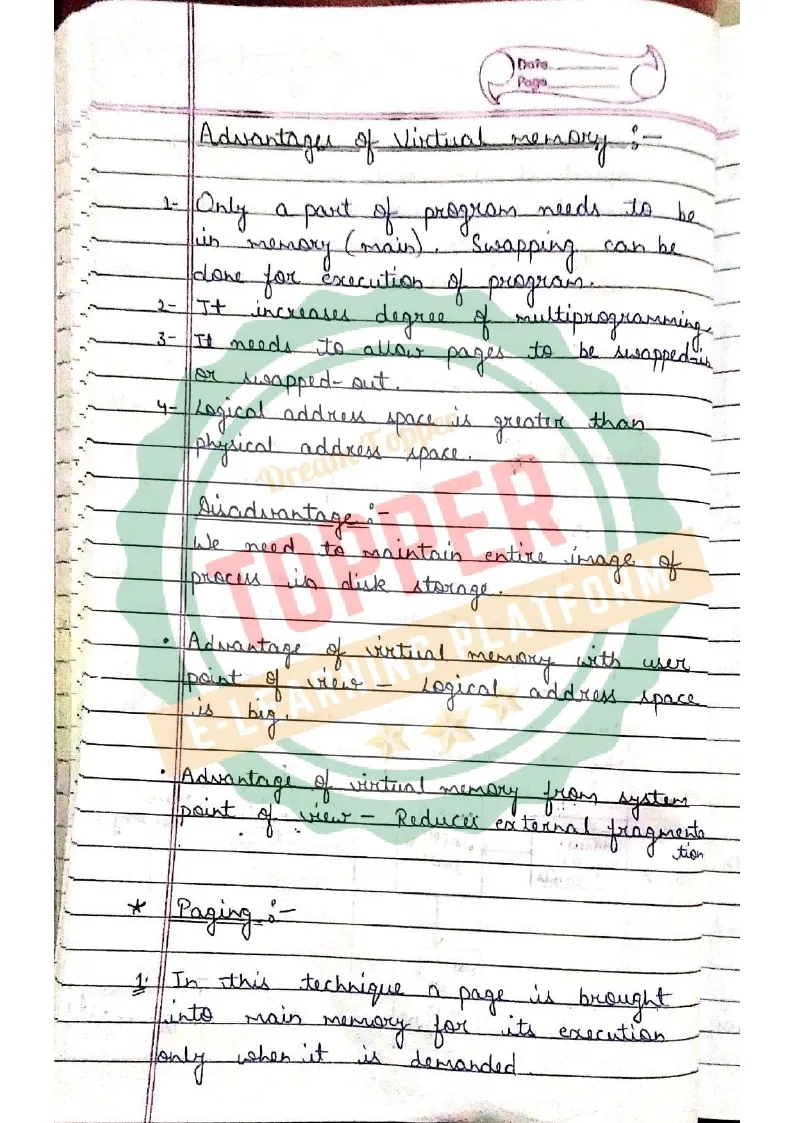 Date
Page
Advantages of Virtual memory :-
1- Only a part of program needs to be
in memory (main). Swapping can be
done for execution of program.
2- It increases degree of multiprogramming.
3- It needs to allow pages to be swapped-in
or swapped-out.
4- Logical address space is greater than
physical address space.
Dream Topper
Disadvantage :-
We need to maintain entire image of
process in disk storage.
TOPPER
E-LEARNING PLATFORM
• Advantage of virtual memory with user
point of view - Logical address space
is big.
• Advantage of virtual memory from system
point of view - Reduces external fragmenta
tion
* Paging :-
1. In this technique a page is brought
into main memory for its execution
only when it is demanded.